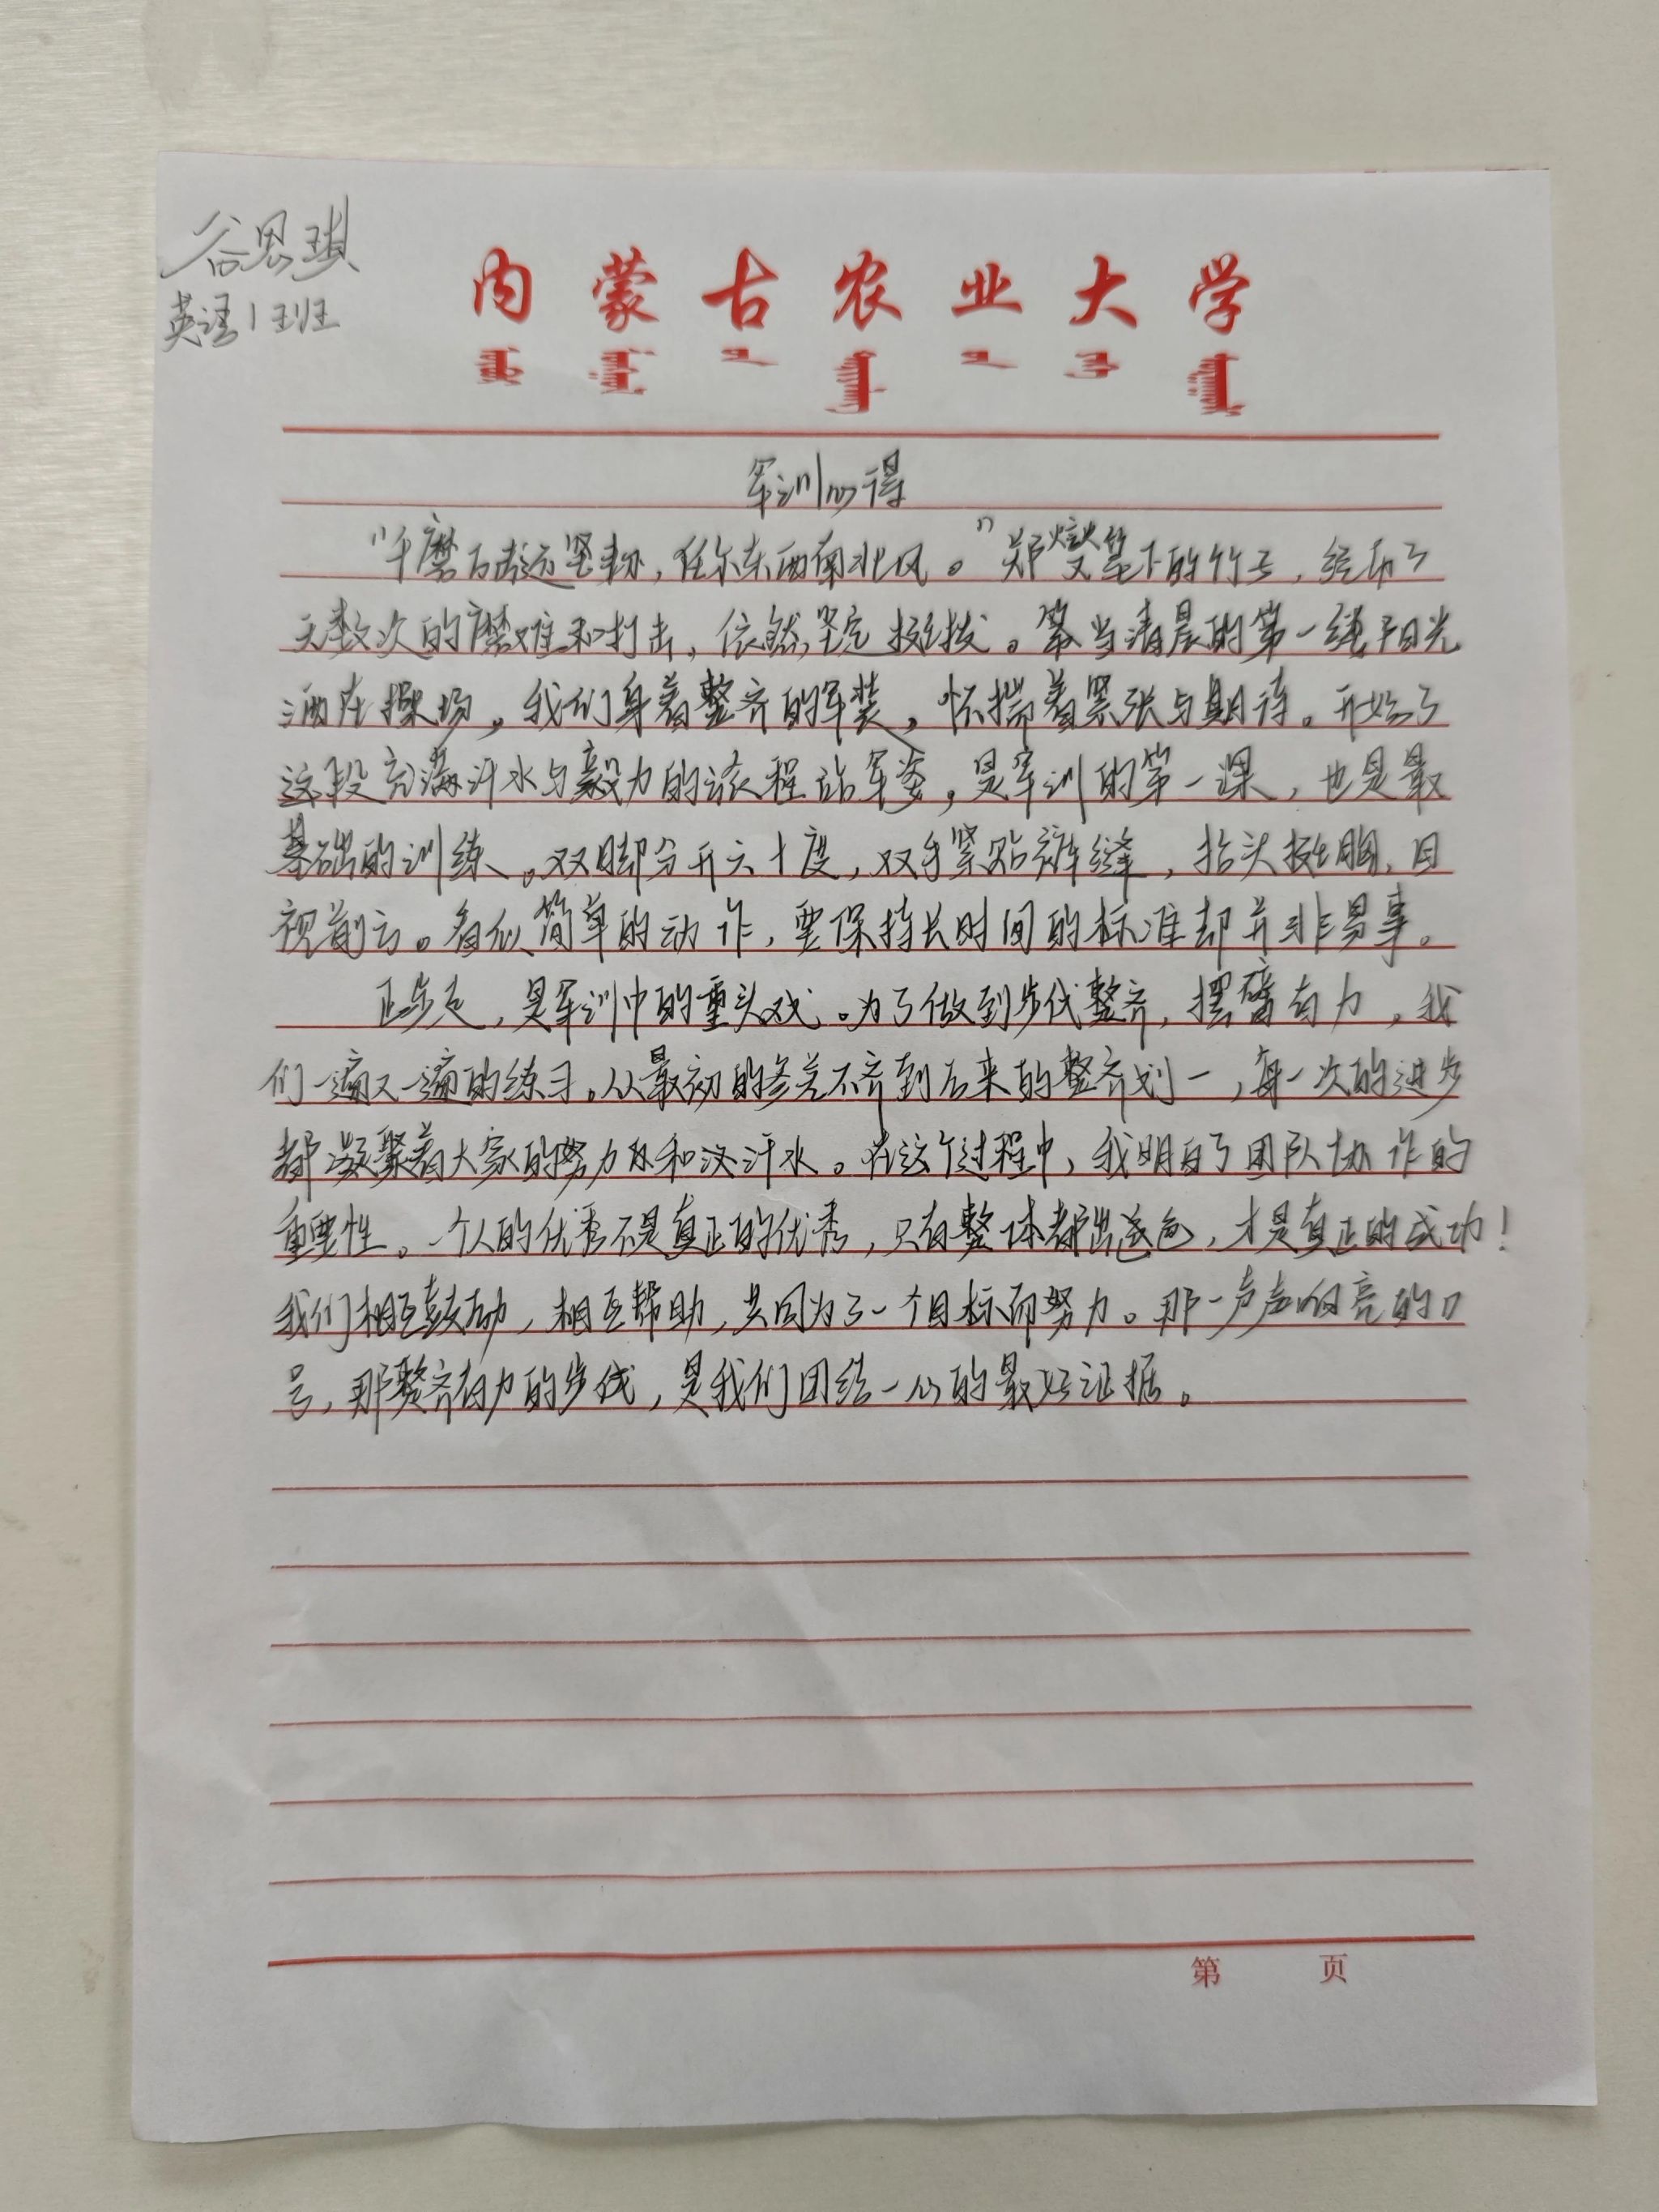 谷思琪
英语1班
内蒙古农业大学
军训心得
“千磨万击还坚韧,任尔东西南北风。”郑燮笔下的竹子,经历了
无数次的磨难和打击,依然坚定挺拔。当清晨的第一缕阳光
洒在操场,我们身着整齐的军装,怀揣着紧张与期待。开始了
这段充满汗水与毅力的旅程站军姿,是军训的第一课,也是最
基础的训练。双脚分开六十度,双手紧贴裤缝,抬头挺胸,目
视前方。看似简单的动作,要保持长时间的标准却并非易事。
正步走,是军训中的重头戏。为了做到步伐整齐,摆臂有力,我
们一遍又一遍的练习。从最初的参差不齐到后来的整齐划一,每一次的进步
都凝聚着大家的努力和汗水。在这个过程中,我明白了团队协作的
重要性。一个人的优秀不是真正的优秀,只有整体都出色,才是真正的成功!
我们相互鼓励,相互帮助,共同为了一个目标而努力。那一声声响亮的口
号,那整齐有力的步伐,是我们团结一心的最好证据。
第 页